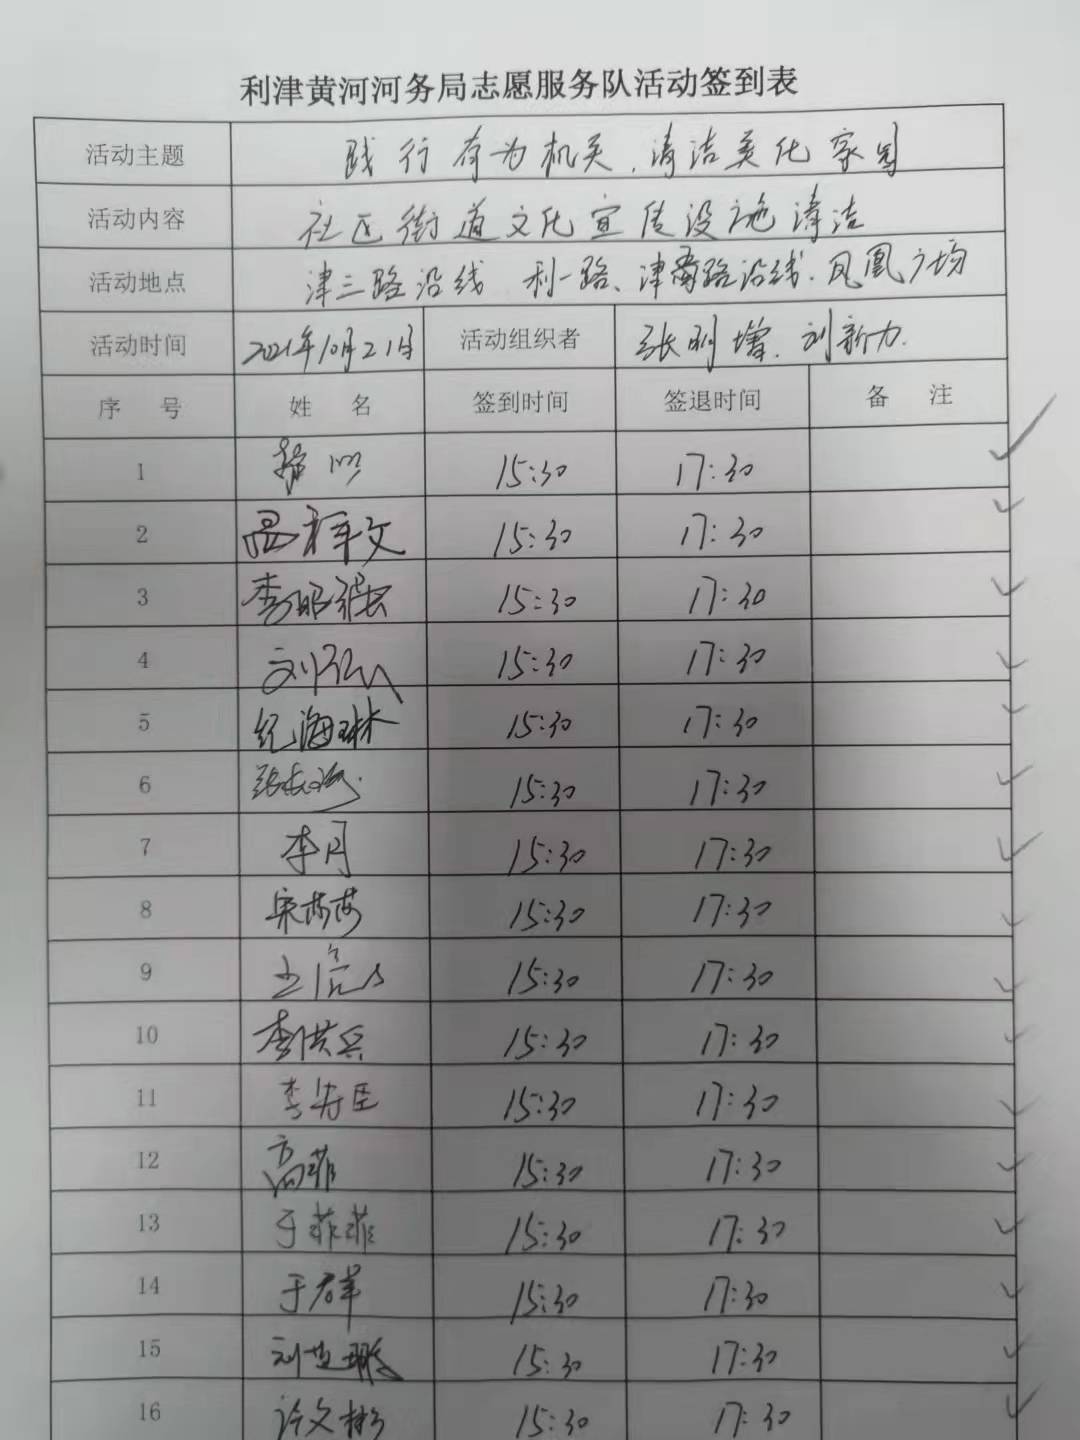 利津黄河河务局志愿服务队活动签到表
活动主题 践行有为机关,清洁美化家园
活动内容 社区街道文化宣传设施清洁
活动地点 津三路沿线 利一路、津路沿线、凤凰广场
活动时间 2021年10月21日 活动组织者 张利增、刘新力
序 号 姓 名 签到时间 签退时间 备 注
1 15:30 17:30
2 15:30 17:30
3 李昭强 15:30 17:30
4 15:30 17:30
5 纪海琳 15:30 17:30
6 15:30 17:30
7 李月 15:30 17:30
8 宋莎莎 15:30 17:30
9 15:30 17:30
10 李洪兵 15:30 17:30
11 15:30 17:30
12 高菲 15:30 17:30
13 于菲菲 15:30 17:30
14 于群 15:30 17:30
15 15:30 17:30
16 许文彬 15:30 17:30